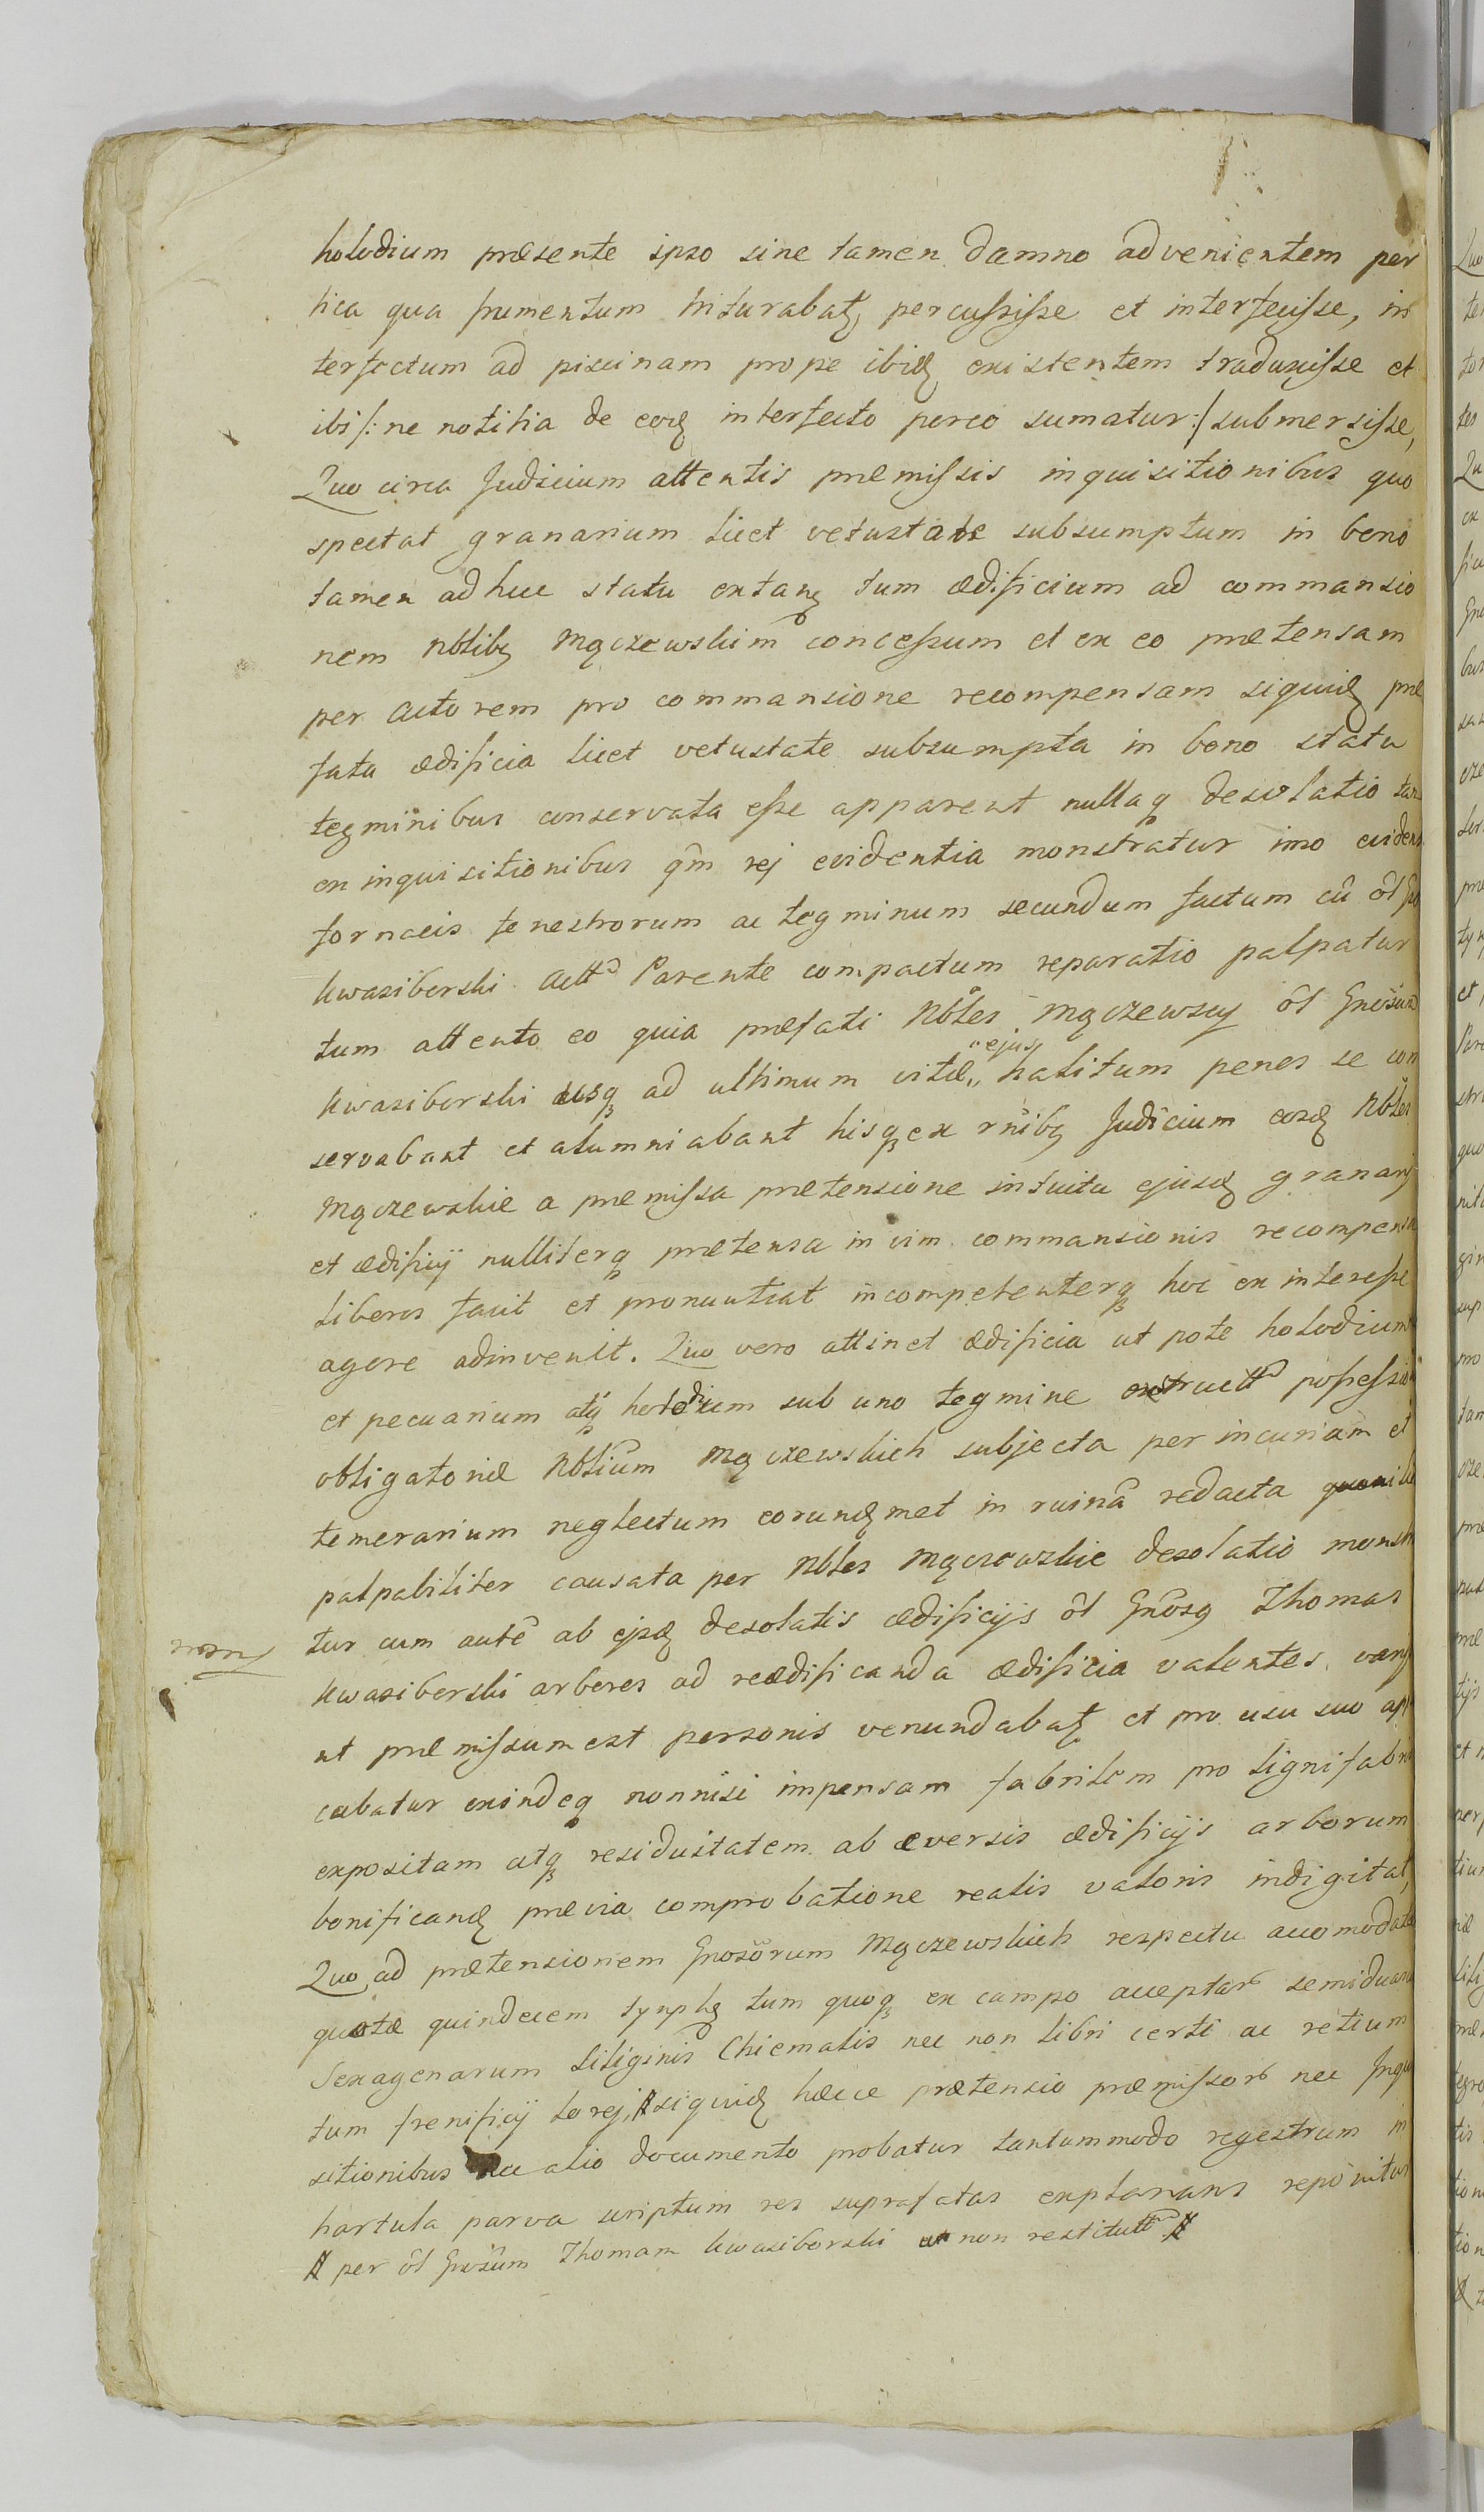 holodium præsente ipso sine tamen damno advenientem per
tica qua frumentum triturabat, percussisse et interfecisse, in
terfectum ad piscinam prope ibid existentem traduxisse et
ibi /: ne notitia de eod interfecto porco sumatur :/ submersisse,
Quo circa Judicium attentis præmissis inquisitionibus quo
spectat granarium licet vetustate subsumptum in bono
tamen adhuc statu extans tum ædificium ad commansio
nem Nbliby Mączewskim concessum et ex eo prætensam
per actorem pro commansione recompensam siquid præ
fata ædificia licet vetustate subsumpta in bono statu
tegminibus conservata esse apparent nullaq desolatio tam
ex inquisitionibus qm rej evidentia monstratur imo evidens
fornacis fenestrorum ac tegminum secundum factum cū ol
Kwasiborski Actt Parente compactum reparatio palpatur
tum attento eo quia præfati Nbles Mączewscy ol Gnosum
Kwasiborski usq ad ultimum vitæ ejus halitum penes se con
servabant et alumniabant hisq ex rnibq Judicium eosd Nbles
Mączewskie a præmissa prætensione intuitu ejusd granarij
et ædificij nulliterq prætensa in vim commansionis recompensa
liberos facit et pronuntiat incompetenterq hoc ex interesse
agere adinvenit. Quo vero attinet ædificia ut pote holodium
et pecuarium atq holodium sub uno tegmine exstructt possessioni
obligatoriæ Nblium Mączewskich subjecta per incuriam et
temerarium neglectum eorundmet in ruinā redacta
palpabiliter causata per Nbles Mączewskie desolatio monstra
tur cum autē ab ejsd desolatis ædificijs ol Gnosq Thomas
Kwasiborski arbores ad reædificanda ædificia valentes varijs
ut præmissum est personis venundabat et pro usu suo appli
cabatur exindeq nonnisi impensam fabrilem pro lignifabris
expositam atq residuitatem ab eversis ædificijs arborum
bonificand prævia comprobatione realis valoris indigitat,
Quo ad prætensionem Gnosorum Mączewskich respectu accomodatæ
quotæ quindecem tynph tum quoq ex campo acceptar semiduarum
Sexagenarum siliginis Chiematis nec non libri certi ac retium
tum frenificij lorej # siquid hæcce prætensio præmissor nec Inqui
sitionibus nec alio documento probatur tantummodo regestrum in
hartula parva scriptum res suprafatas explanans reponitur
# per ol Gnosum Thomam Kwasiborski non restitutt #